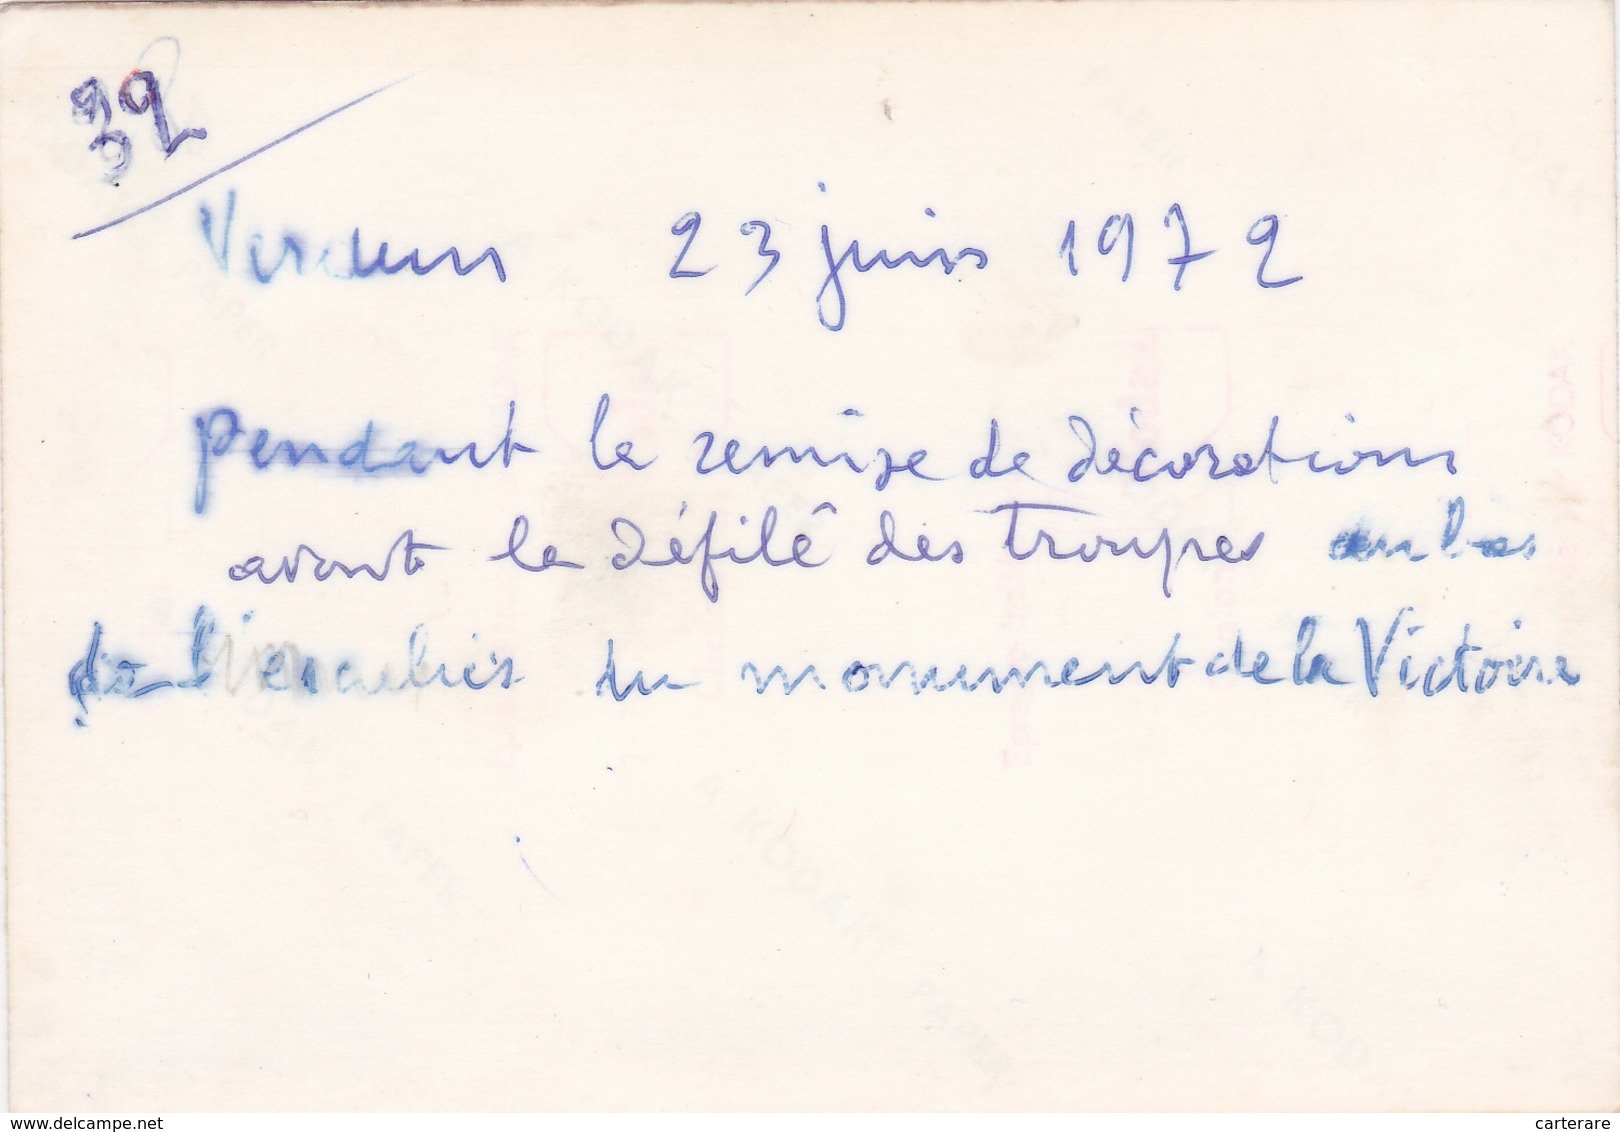 39
Verdun 23 juin 1972
pendant la remise de décorations
avant le défilé des troupes au bas
de l'escalier du monument de la Victoire
A KODAK PAPER
delcampe.net
carterare